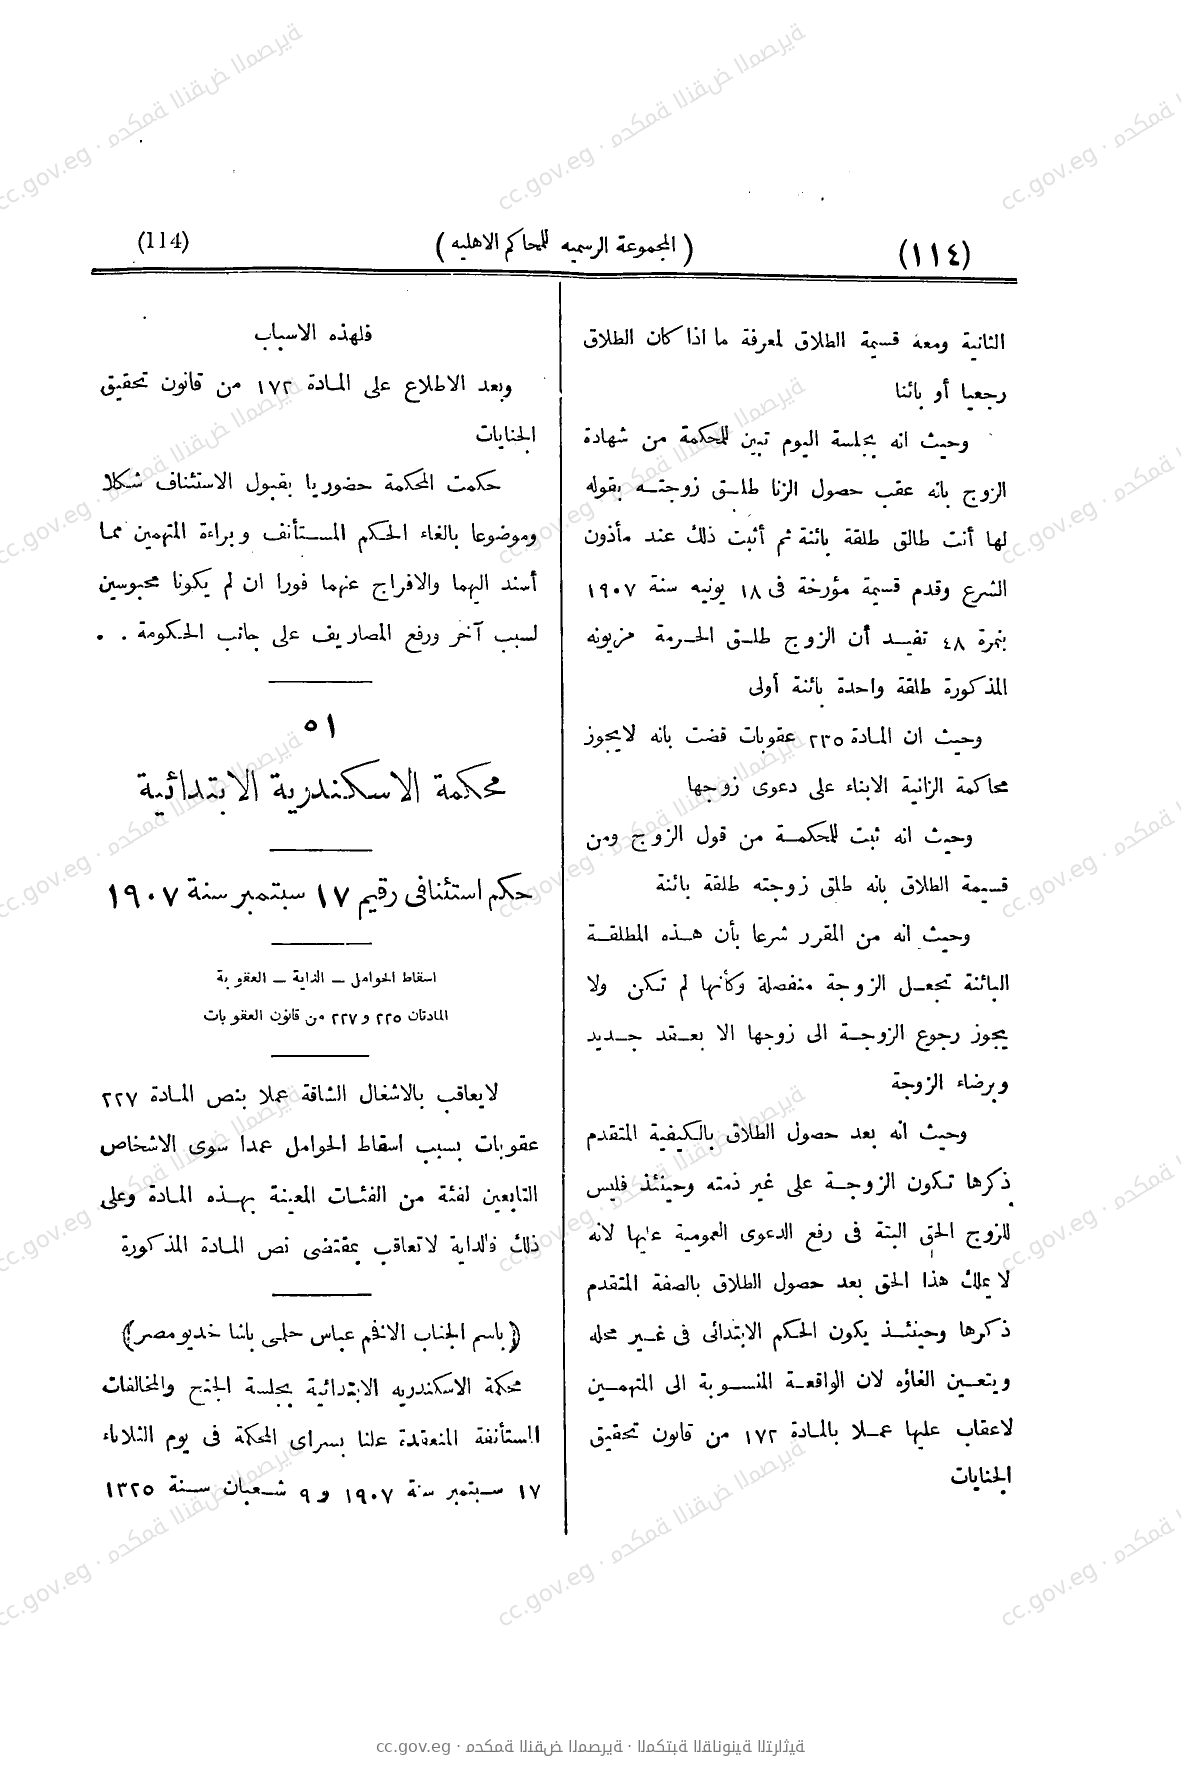 (١١٤)
( المجموعة الرسميه للمحاكم الاهليه )
(114)
الثانية ومعه قسيمة الطلاق لمعرفة ما اذا كان الطلاق
رجعيا أو بائنا
وحيث انه بجلسة اليوم تبين للمحكمة من شهادة
الزوج بانه عقب حصول الزنا طلق زوجته بقوله
لها أنت طالق طلقة بائنة ثم أثبت ذلك عند مأذون
الشرع وقدم قسيمة مؤرخة فى ١٨ يونيه سنة ١٩٠٧
بنمرة ٤٨ تفيد أن الزوج طلق الحرمة مزيونه
المذكورة طلقة واحدة بائنة أولى
وحيث ان المادة ٢٣٥ عقوبات قضت بانه لايجوز
محاكمة الزانية الابناء على دعوى زوجها
وحيث انه ثبت للمحكمة من قول الزوج ومن
قسيمة الطلاق بانه طلق زوجته طلقة بائنة
وحيث انه من المقرر شرعا بأن هذه المطلقة
البائنة تجعل الزوجة منفصلة وكأنها لم تكن ولا
يجوز رجوع الزوجة الى زوجها الا بعقد جديد
وبرضاء الزوجة
وحيث انه بعد حصول الطلاق بالكيفية المتقدم
ذكرها تكون الزوجة على غير ذمته وحينئذ فليس
للزوج الحق البتة فى رفع الدعوى العمومية عليها لانه
لا يملك هذا الحق بعد حصول الطلاق بالصفة المتقدم
ذكرها وحينئذ يكون الحكم الابتدائى فى غير محله
ويتعين الغاؤه لان الواقعة المنسوبة الى المتهمين
لاعقاب عليها عملا بالمادة ١٧٢ من قانون تحقيق
الجنايات
فلهذه الاسباب
وبعد الاطلاع على المادة ١٧٢ من قانون تحقيق
الجنايات
حكمت المحكمة حضوريا بقبول الاستئناف شكلا
وموضوعا بالغاء الحكم المستأنف وبراءة المتهمين مما
أسند اليهما والافراج عنهما فورا ان لم يكونا محبوسين
لسبب آخر ورفع المصاريف على جانب الحكومة . .
٥١
محكمة الاسكندرية الابتدائية
حكم استئنافى رقيم ١٧ سبتمبر سنة ١٩٠٧
اسقاط الحوامل ــ الداية ــ العقوبة
المادتان ٢٢٥ و ٢٢٧ من قانون العقوبات
لايعاقب بالاشغال الشاقة عملا بنص المادة ٢٢٧
عقوبات بسبب اسقاط الحوامل عمدا سوى الاشخاص
التابعين لفئة من الفئات المعينة بهذه المادة وعلى
ذلك فالداية لاتعاقب بمقتضى نص المادة المذكورة
(باسم الجناب الافخم عباس حلمى باشا خديو مصر)
محكمة الاسكندريه الابتدائية بجلسة الجنح والمخالفات
المستأنفة المنعقدة علنا بسراى المحكمة فى يوم الثلاثاء
١٧ سبتمبر سنة ١٩٠٧ و ٩ شعبان سنة ١٣٢٥
cc.gov.eg · محكمة النقض المصرية · المكتبة القانونية التراثية